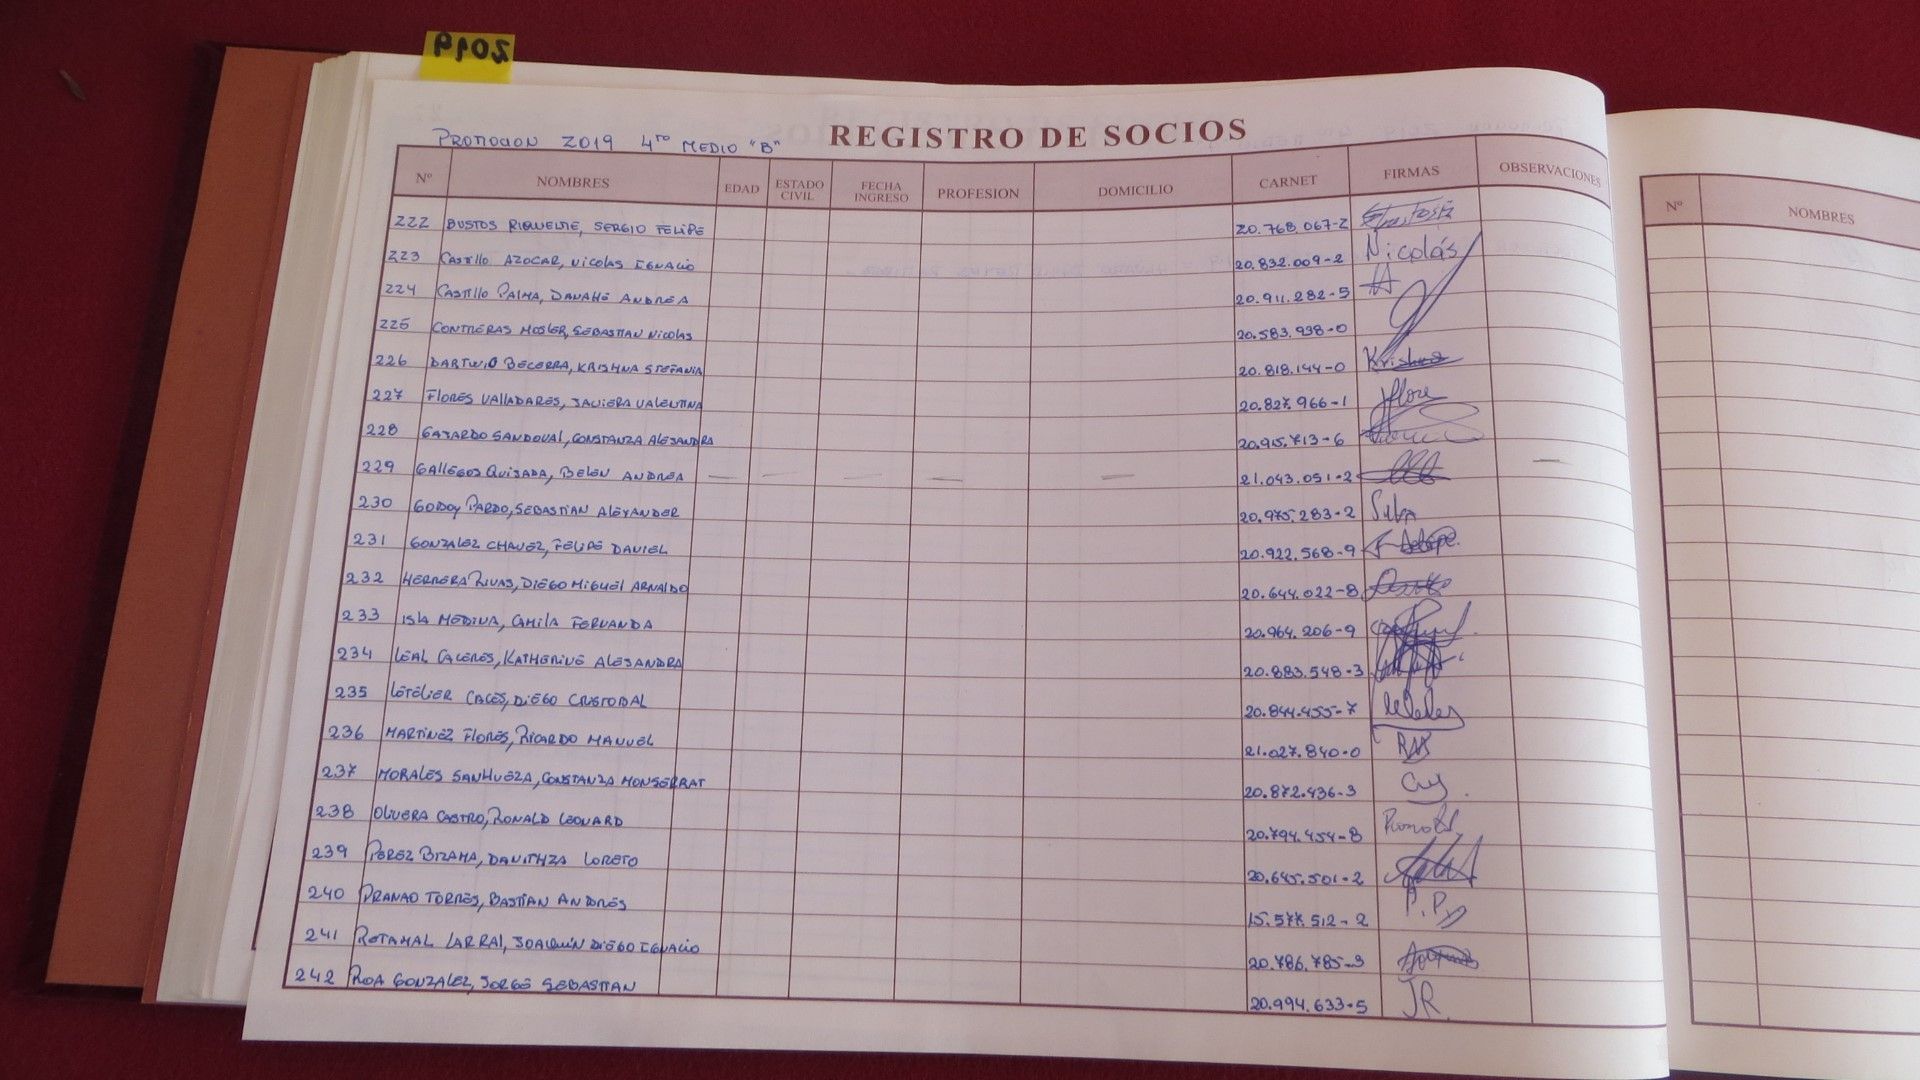 2019
PROMOCION 2019 4TO MEDIO "B"
REGISTRO DE SOCIOS
Nº NOMBRES EDAD ESTADO CIVIL FECHA INGRESO PROFESION DOMICILIO CARNET FIRMAS OBSERVACIONES
222 BUSTOS RIQUELME, SERGIO FELIPE 20.768.067-2
223 CASTILLO AZOCAR, NICOLAS IGNACIO 20.832.009-2 Nicolás
224 CASTILLO PALMA, DANAHE ANDREA 20.911.282-5
225 CONTRERAS MOSLER, SEBASTIAN NICOLAS 20.583.938-0
226 BECERRA, KRISHNA STEFANIA 20.818.144-0 Krishna
227 FLORES VALLADARES, JAVIERA VALENTINA 20.827.966-1
228 GAJARDO SANDOVAL, CONSTANZA ALEJANDRA 20.915.713-6
229 GALLEGOS QUIJADA, BELEN ANDREA — — — — — 21.043.051-2 —
230 GODOY PARDO, SEBASTIAN ALEXANDER 20.975.283-2
231 GONZALEZ CHAVEZ, FELIPE DANIEL 20.922.568-9
232 HERRERA RIVAS, DIEGO MIGUEL ARNALDO 20.644.022-8
233 ISLA MEDINA, CAMILA FERNANDA 20.964.206-9
234 LEAL CACERES, KATHERINE ALEJANDRA 20.883.548-3
235 LETELIER, DIEGO CRISTOBAL 20.844.455-7
236 MARTINEZ FLORES, RICARDO MANUEL 21.027.840-0
237 MORALES SANHUEZA, CONSTANZA MONSERRAT 20.872.436-3
238 OLIVERA CASTRO, RONALD LEONARD 20.794.454-8
239 PEREZ BIZAMA, DANITHZA LORETO 20.645.501-2
240 PRANAO TORRES, BASTIAN ANDRES 15.577.512-2 P.P
241 RETAMAL LARRAI, JOAQUIN DIEGO IGNACIO 20.786.785-3
242 ROA GONZALEZ, JORGE SEBASTIAN 20.994.633-5 JR.
Nº NOMBRES